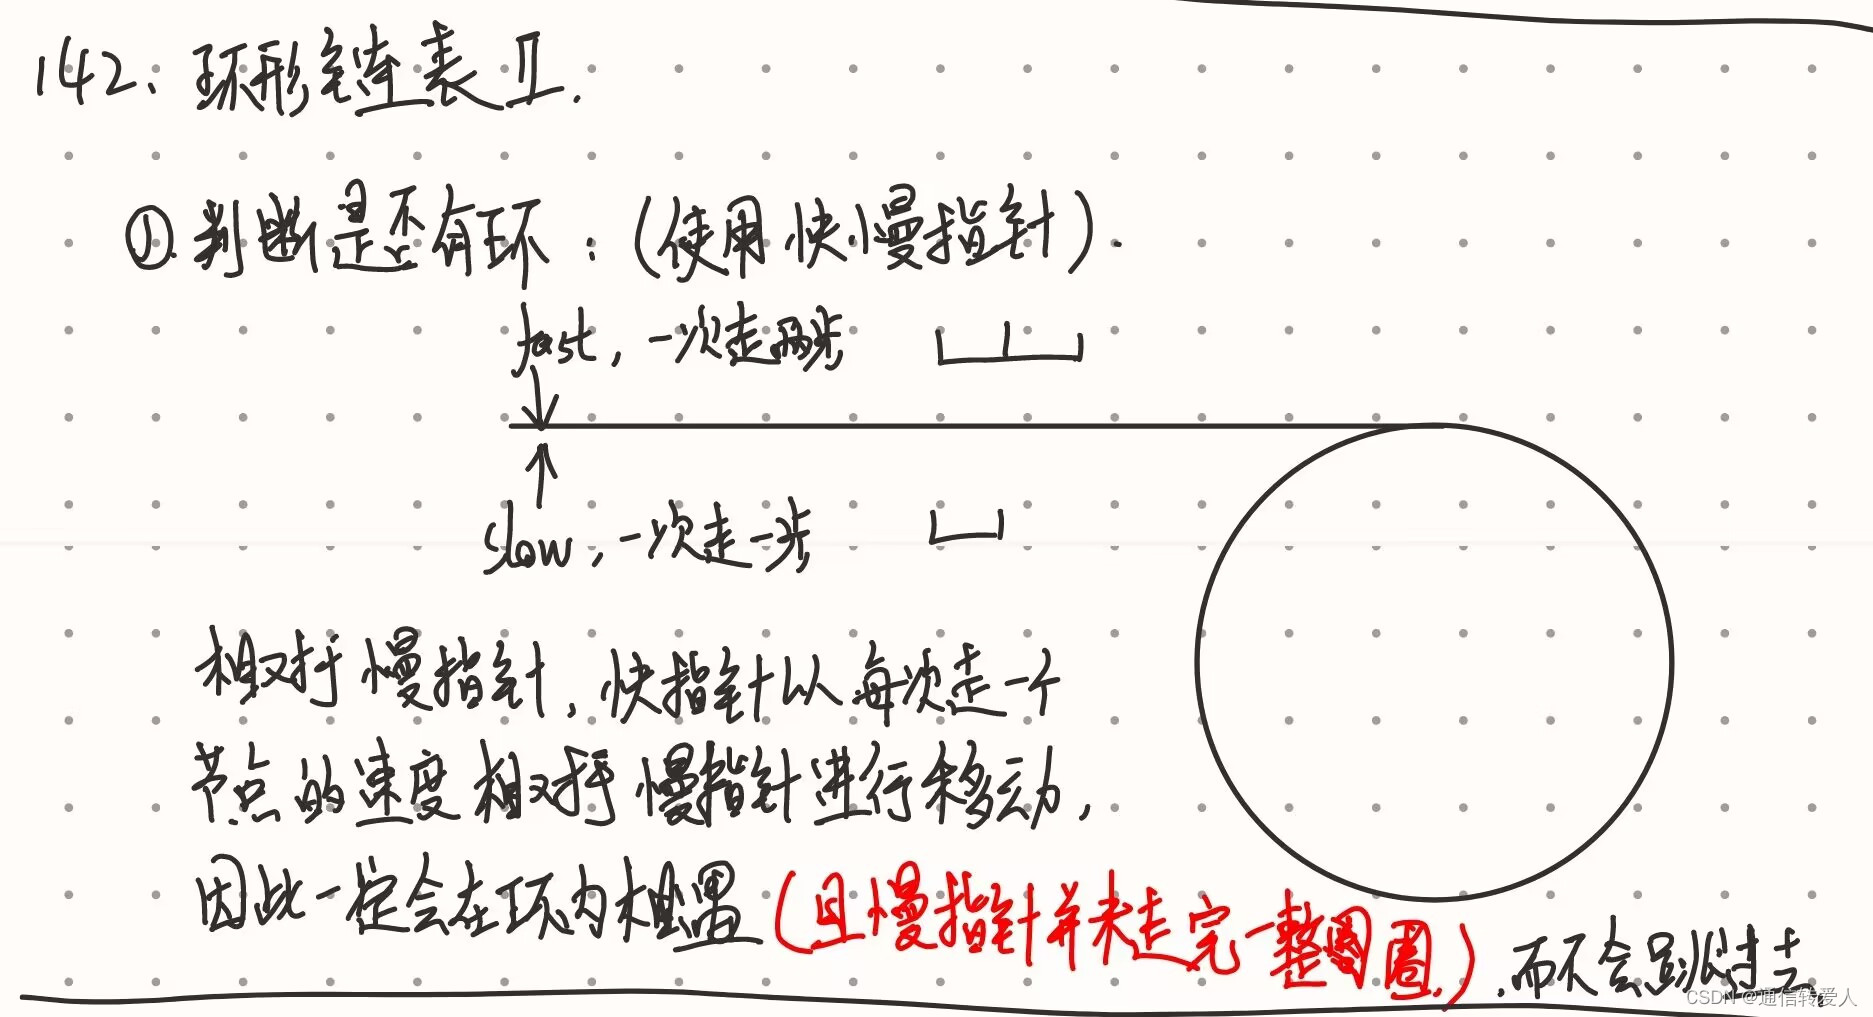 142、环形链表 II.
①.判断是否有环：(使用快慢指针).
fast，一次走两步
slow，一次走一步
相对于慢指针，快指针以每次走一个
节点的速度相对于慢指针进行移动，
因此一定会在环内相遇(且慢指针并未走完一整圈).而不会跳过去
CSDN @通信转爱人